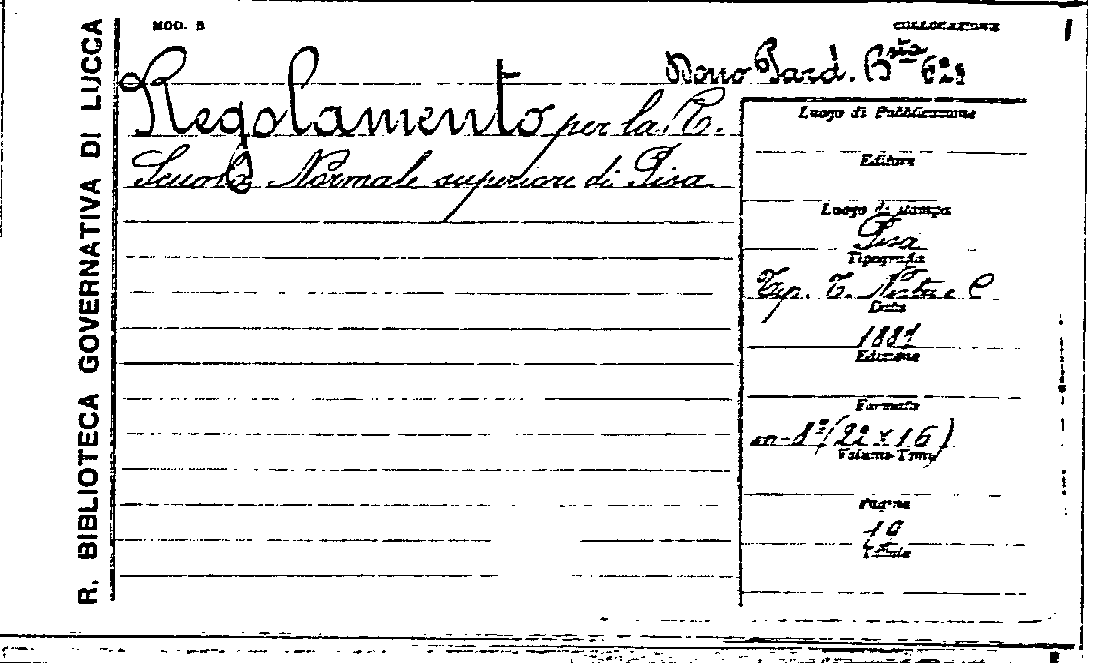 R. BIBLIOTECA GOVERNATIVA DI LUCCA
MOD. B
COLLOCAZIONE
Dono Pard. Bta 621
Regolamento per la R.
Scuola Normale superiore di Pisa
Luogo di Pubblicazione
Editore
Luogo di stampa
Pisa
Tipografia
Tip. T. Nistri e C
Data
1881
Edizione
Formato
in-8° (22 x 16)
Volume-Tomo
Pagine
10